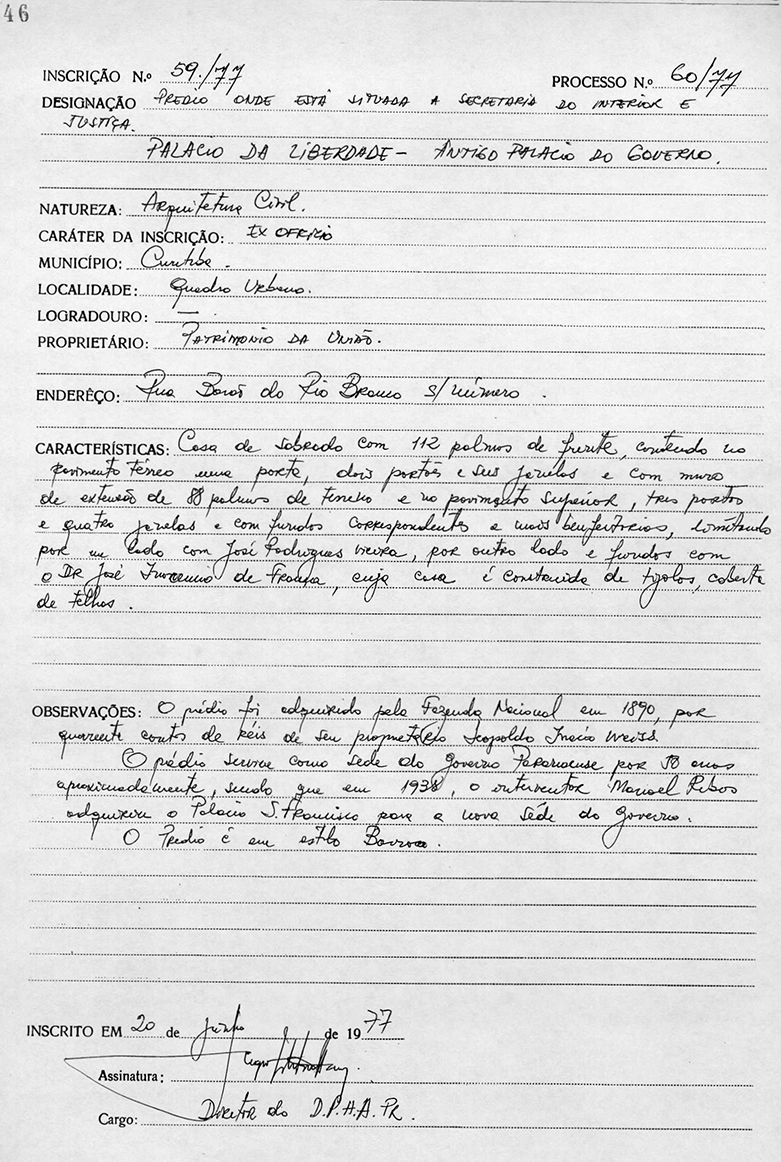 46
INSCRIÇÃO N.º 59./77 PROCESSO N.º 60/77
DESIGNAÇÃO PREDIO ONDE ESTÁ SITUADA A SECRETARIA DO INTERIOR E
JUSTIÇA.
PALACIO DA LIBERDADE - ANTIGO PALACIO DO GOVERNO.
NATUREZA: Arquitetura Civil.
CARÁTER DA INSCRIÇÃO: EX OFFICIO
MUNICÍPIO: Curitiba.
LOCALIDADE: Quadro Urbano.
LOGRADOURO: —
PROPRIETÁRIO: PATRIMONIO DA UNIÃO.
ENDERÊÇO: Rua Barão do Rio Branco s/número.
CARACTERÍSTICAS: Casa de sobrado com 112 palmos de frente, contendo no
pavimento térreo uma porta, dois portões e seis janelas e com muro
de extensão de 88 palmos de terreno e no pavimento superior, tres portas
e quatro janelas e com fundos correspondentes e mais benfeitorias, limitando
por um lado com José Rodrigues Vieira, por outro lado e fundos com
o DR José Inocencio de França, cuja casa é construida de tijolos, coberta
de telhas.
OBSERVAÇÕES: O prédio foi adquirido pela Fazenda Nacional em 1890, por
quarenta contos de réis de seu proprietário Leopoldo Inacio Weiss.
O prédio serviu como sede do Governo Paranaense por 50 anos
aproximadamente, sendo que em 1938, o interventor Manoel Ribas
adquiriu o Palacio S. Francisco para a nova Séde do Governo.
O Predio é em estilo Barroco.
INSCRITO EM 20 de junho de 1977
Assinatura:
Cargo: Diretor do D.P.H.A. PR.